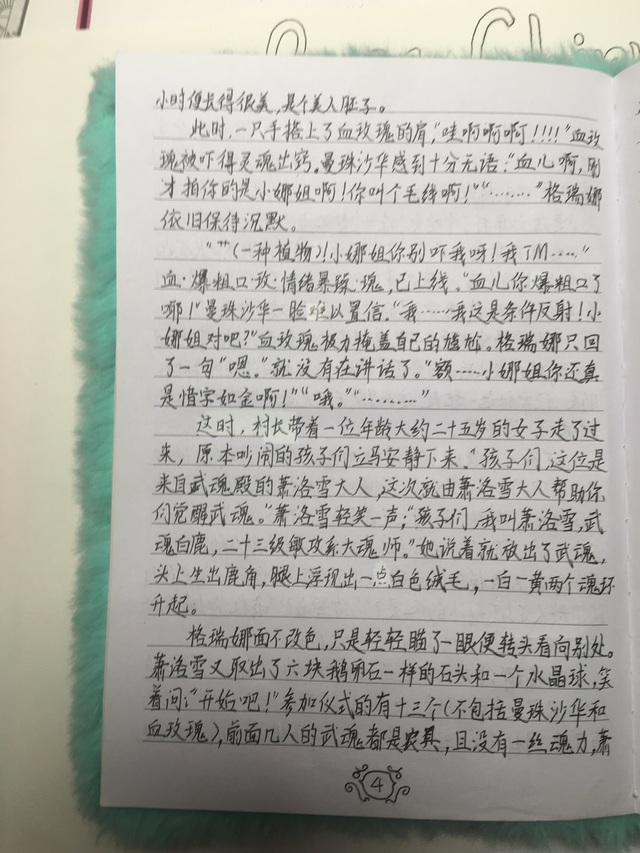 小时便长得很美,是个美人胚子。
此时,一只手搭上了血玫瑰的肩,"哇啊啊啊!!!!"血玫
瑰被吓得灵魂出窍。曼珠沙华感到十分无语:"血儿啊,刚
才拍你的是小娜姐啊!你叫个毛线啊!""………"格瑞娜
依旧保持沉默。
"艹(一种植物)!小娜姐你别吓我呀!我TM……"
血·爆粗口·玫·情绪暴躁·瑰,已上线。"血儿你爆粗口了
哪!"曼珠沙华一脸难以置信。"我……我这是条件反射!小
娜姐对吧?"血玫瑰极力掩盖自己的尴尬。格瑞娜只回
了一句"嗯。"就没有在讲话了。"额……小娜姐你还真
是惜字如金啊!""哦。""………"
这时,村长带着一位年龄大约二十五岁的女子走了过
来,原本吵闹的孩子们立马安静下来。"孩子们,这位是
来自武魂殿的萧洛雪大人,这次就由萧洛雪大人帮助你
们觉醒武魂。"萧洛雪轻笑一声:"孩子们,我叫萧洛雪,武
魂白鹿,二十三级敏攻系大魂师。"她说着就放出了武魂,
头上生出鹿角,腿上浮现出一点白色绒毛,一白一黄两个魂环
升起。
格瑞娜面不改色,只是轻轻瞄了一眼便转头看向别处。
萧洛雪又取出了六块鹅卵石一样的石头和一个水晶球,笑
着问:"开始吧!"参加仪式的有十三个(不包括曼珠沙华和
血玫瑰),前面几人的武魂都是农具,且没有一丝魂力,萧
4